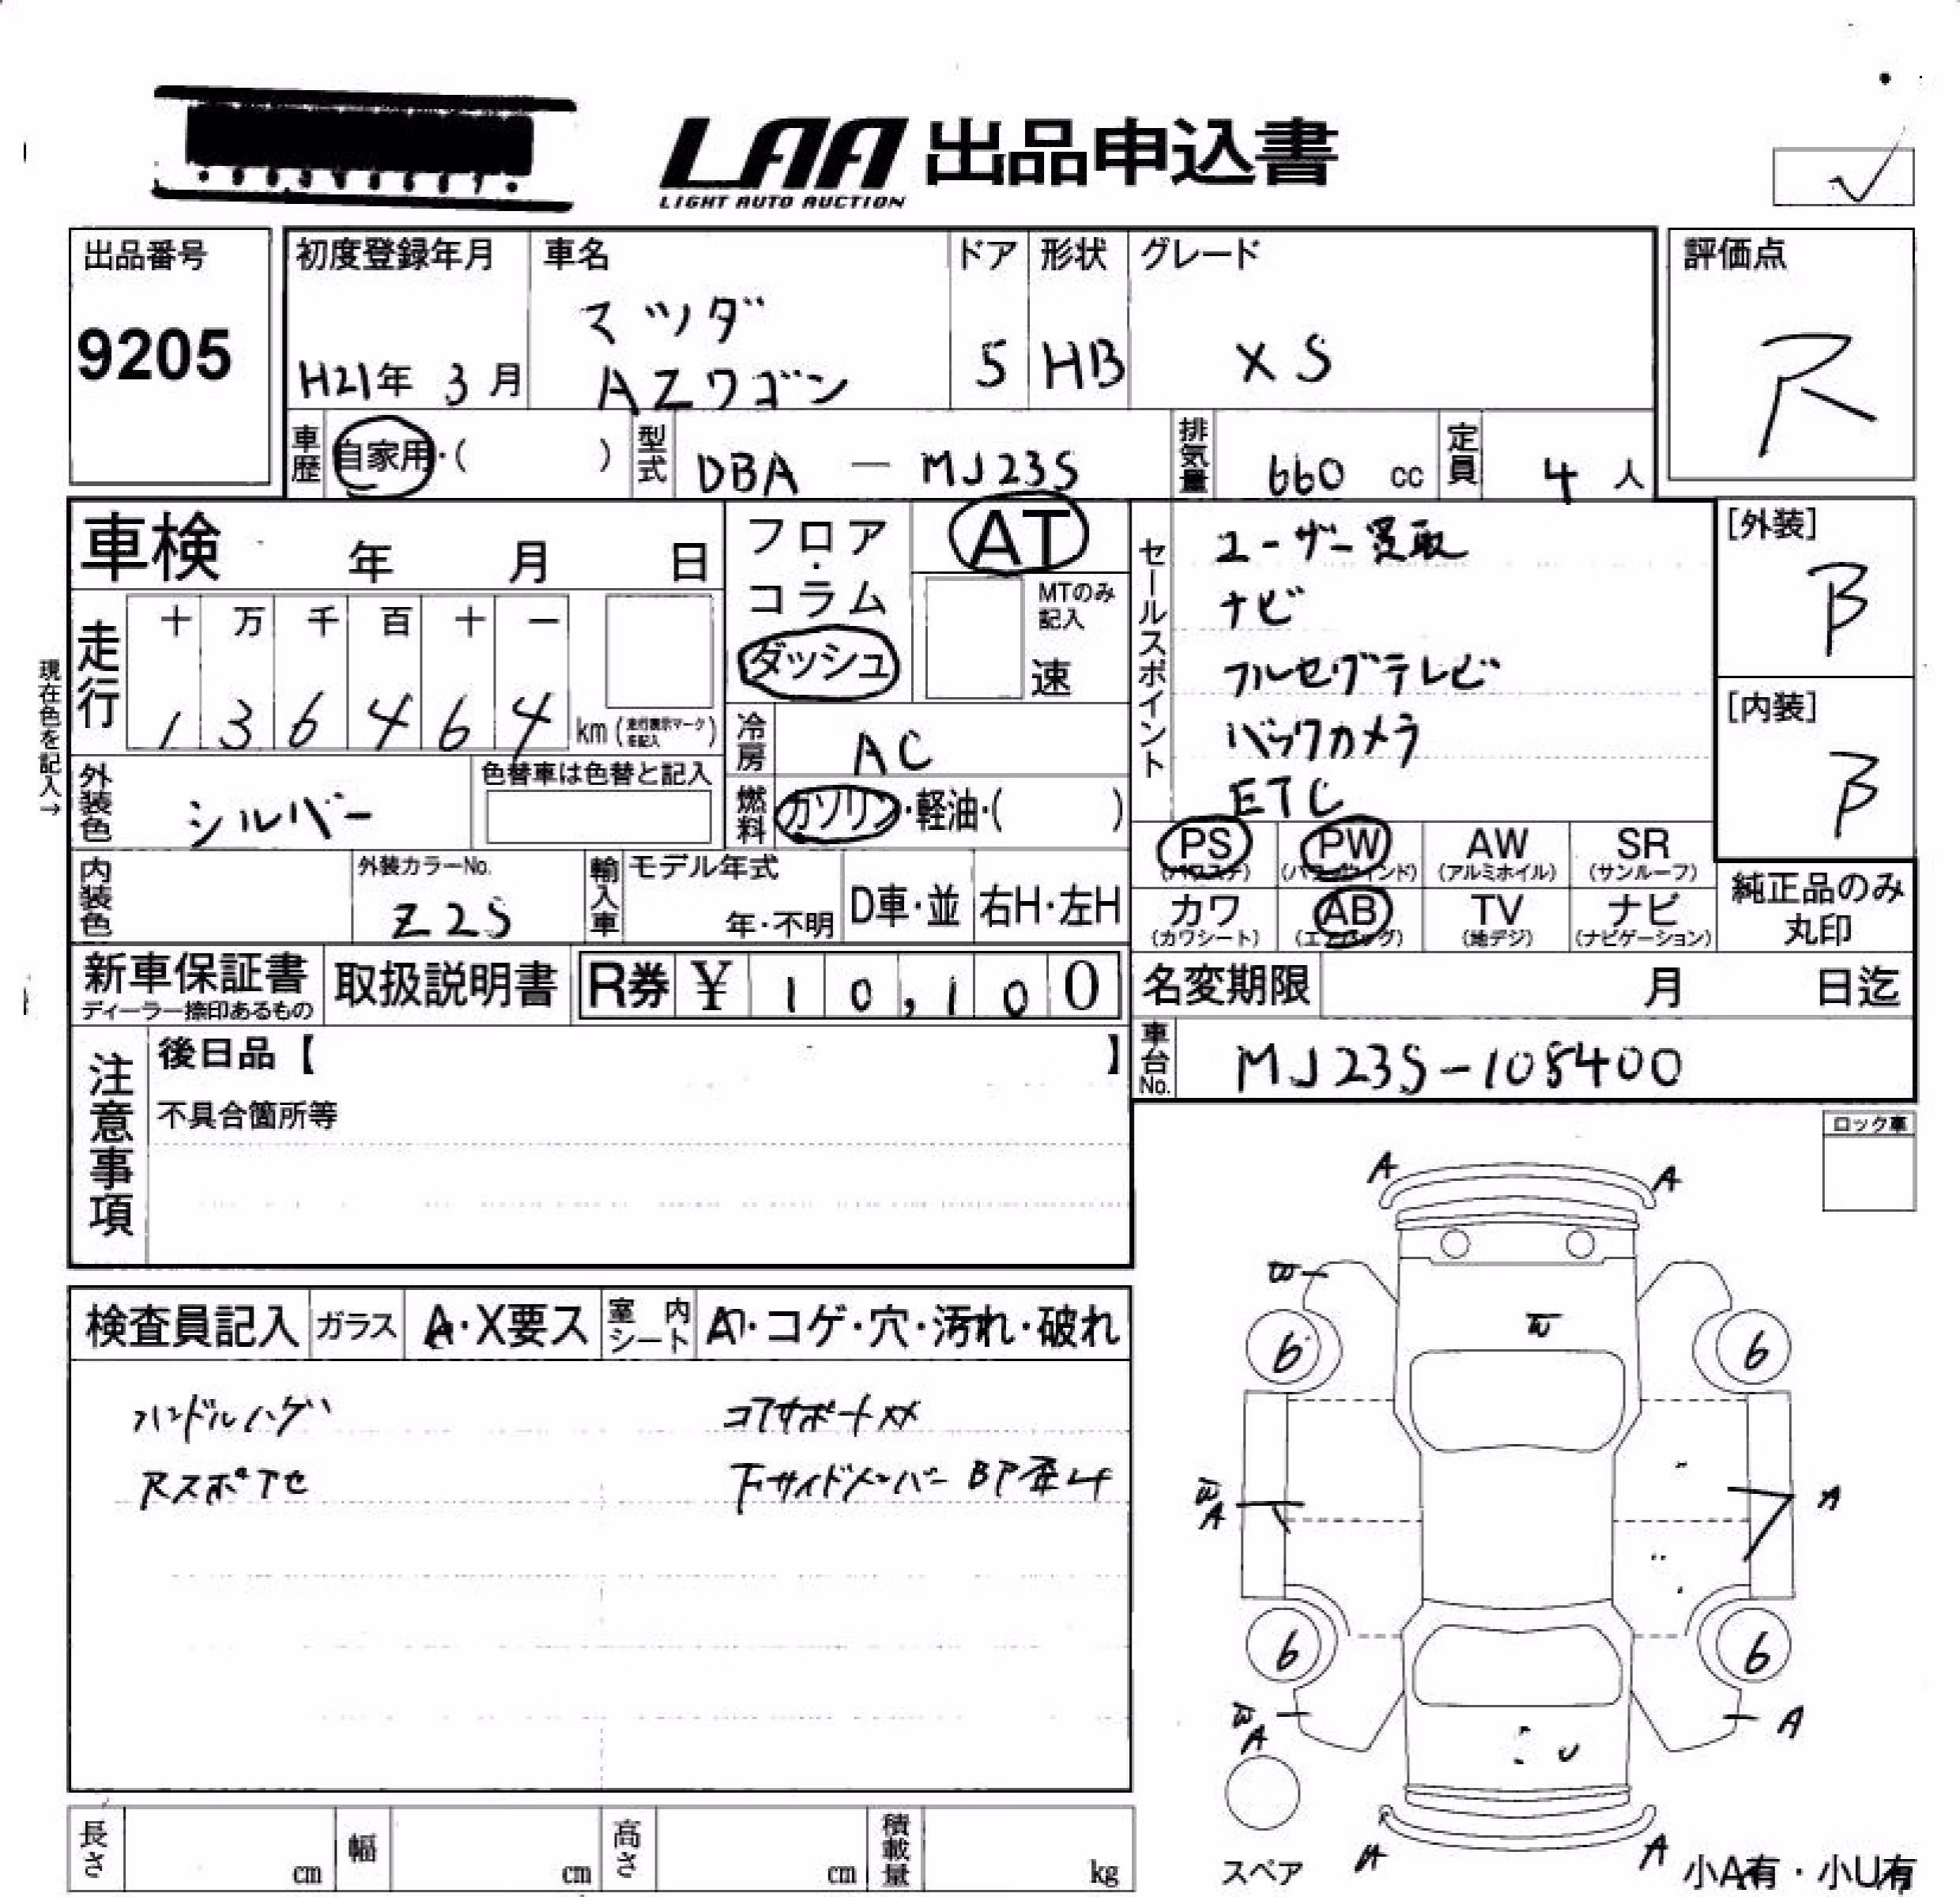 LAA 出品申込書
LIGHT AUTO AUCTION
出品番号
9205
初度登録年月
H21年 3月
車名
マツダ
AZワゴン
ドア
5
形状
HB
グレード
XS
評価点
R
車歴
自家用・( )
型式
DBA - MJ23S
排気量
660 cc
定員
4 人
車検 年 月 日
走行
十 万 千 百 十 一
1 3 6 4 6 4 km (走行表示マークを記入)
現在色を記入→
フロア・コラム
ダッシュ
AT
MTのみ記入
速
冷房
AC
燃料
ガソリン・軽油・( )
外装色
シルバー
色替車は色替と記入
内装色
外装カラーNo.
Z2S
輸入車
モデル年式
年・不明
D車・並
右H・左H
セールスポイント
ユーザー買取
ナビ
フルセグテレビ
バックカメラ
ETC
[外装]
B
[内装]
B
PS
(パワステ)
PW
(パワーウインド)
AW
(アルミホイル)
SR
(サンルーフ)
カワ
(カワシート)
AB
(エアバッグ)
TV
(地デジ)
ナビ
(ナビゲーション)
純正品のみ
丸印
新車保証書
ディーラー捺印あるもの
取扱説明書
R券 ¥ 10,100
名変期限 月 日迄
車台No.
MJ23S-105400
注意事項
後日品【 】
不具合箇所等
ロック車
検査員記入
ガラス
A・X要ス
室内シート
コゲ・穴・汚れ・破れ
ハンドルハゲ
コアサポートXX
Rスポアセ
下サイドメンバー
A
A
W
W
6
6
W
A
A
6
6
W
A
A
U
スペア
A
A
小A有・小U有
長さ cm
幅 cm
高さ cm
積載量 kg